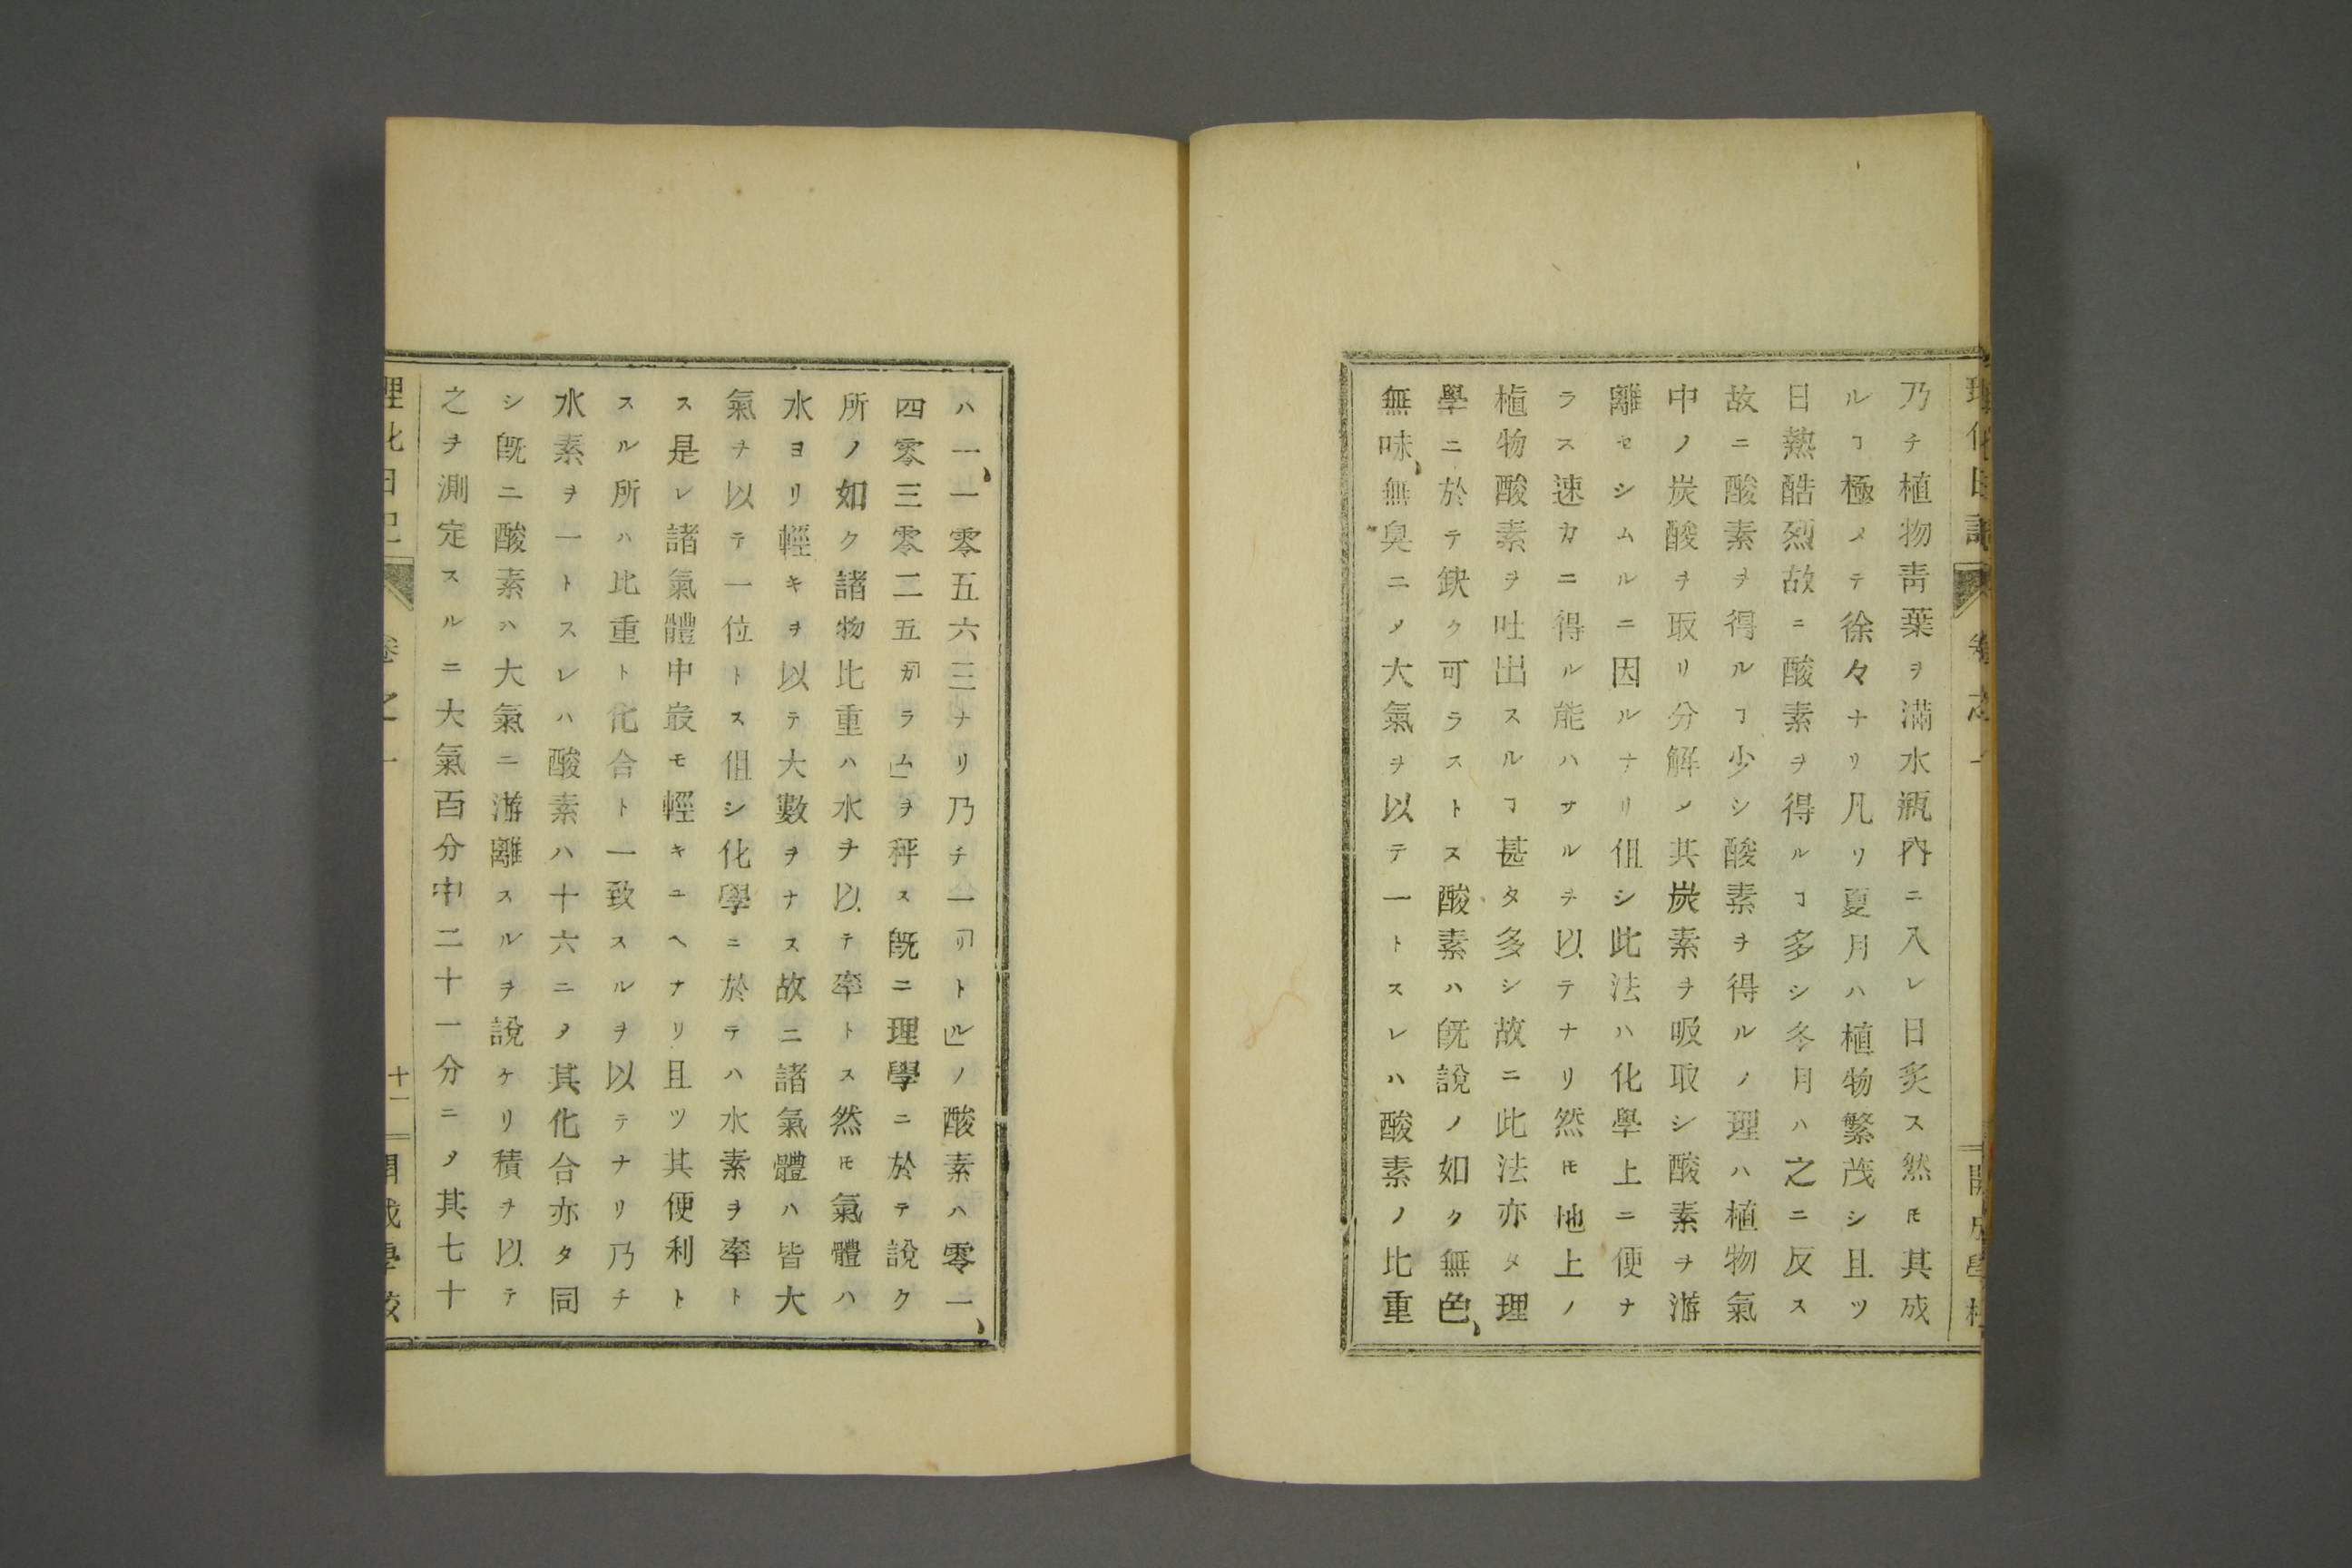 理化日記 卷之一 開成學校
乃チ植物靑葉ヲ滿水瓶內ニ入レ日炙ス然ㇳモ其成
ルヿ極メテ徐々ナリ凡ソ夏月ハ植物繁茂シ且ツ
日熱酷烈故ニ酸素ヲ得ルヿ多シ冬月ハ之ニ反ス
故ニ酸素ヲ得ルヿ少シ酸素ヲ得ルノ理ハ植物氣
中ノ炭酸ヲ取リ分解ノ其炭素ヲ吸取シ酸素ヲ游
離セシムルニ因ルナリ但シ此法ハ化學上ニ便ナ
ラス速カニ得ル能ハサルヲ以テナリ然𪜈地上ノ
植物酸素ヲ吐出スルヿ甚タ多シ故ニ此法亦タ理
學ニ於テ欠ク可ラストス酸素ハ旣說ノ如ク無色、
無味、無臭ニメ大氣ヲ以テ一トスレハ酸素ノ比重
ハ一、一零五六三ナリ乃チ一「リトル」ノ酸素ハ零一、
四零三零二五「ガラム」ヲ秤ス旣ニ理學ニ於テ說ク
所ノ如ク諸物比重ハ水ヲ以テ率トス然𪜈氣體ハ
水ヨリ輕キヲ以テ大數ヲナス故ニ諸氣體ハ皆大
氣ヲ以テ一位トス但シ化學ニ於テハ水素ヲ率ト
ス是レ諸氣體中最モ輕キユヘナリ且ツ其便利ト
スル所ハ比重ト化合ト一致スルヲ以テナリ乃チ
水素ヲ一トスレハ酸素ハ十六ニメ其化合亦タ同
シ旣ニ酸素ハ大氣ニ游離スルヲ說ケリ積ヲ以テ
之ヲ測定スルニ大氣百分中二十一分ニメ其七十
理化日記 卷之一 十一 開成學校